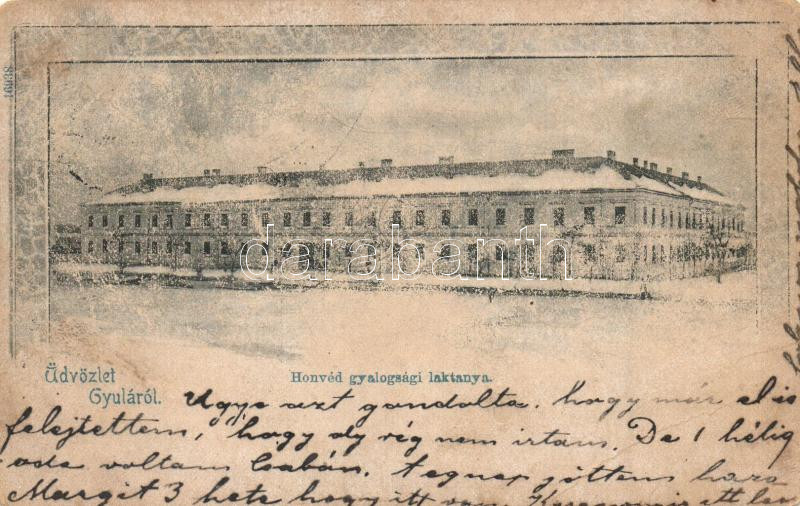 16938
darabanth
Üdvözlet
Gyuláról.
Honvéd gyalogsági laktanya.
Ugye azt gondolta, hogy már el is
felejtettem, hogy oly rég nem irtam. De 1 hétig
oda voltam Csabán. Tegnap jöttem haza
Margit 3 hete hogy itt van. itt